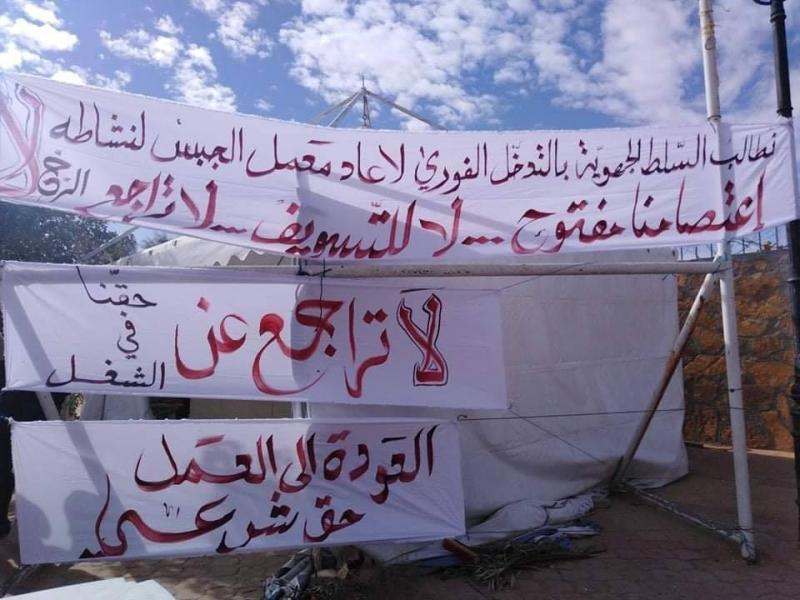 نطالب السّلط الجهويّة بالتدخّل الفوري لاعاد معمل الجبس لنشاطه
إعتصامنا مفتوح ... لا للتّسويف ... لا تراجع
لا
لا تراجع عن
حقّنا
في
الشغل
العودة الى العمل
حق شرعي